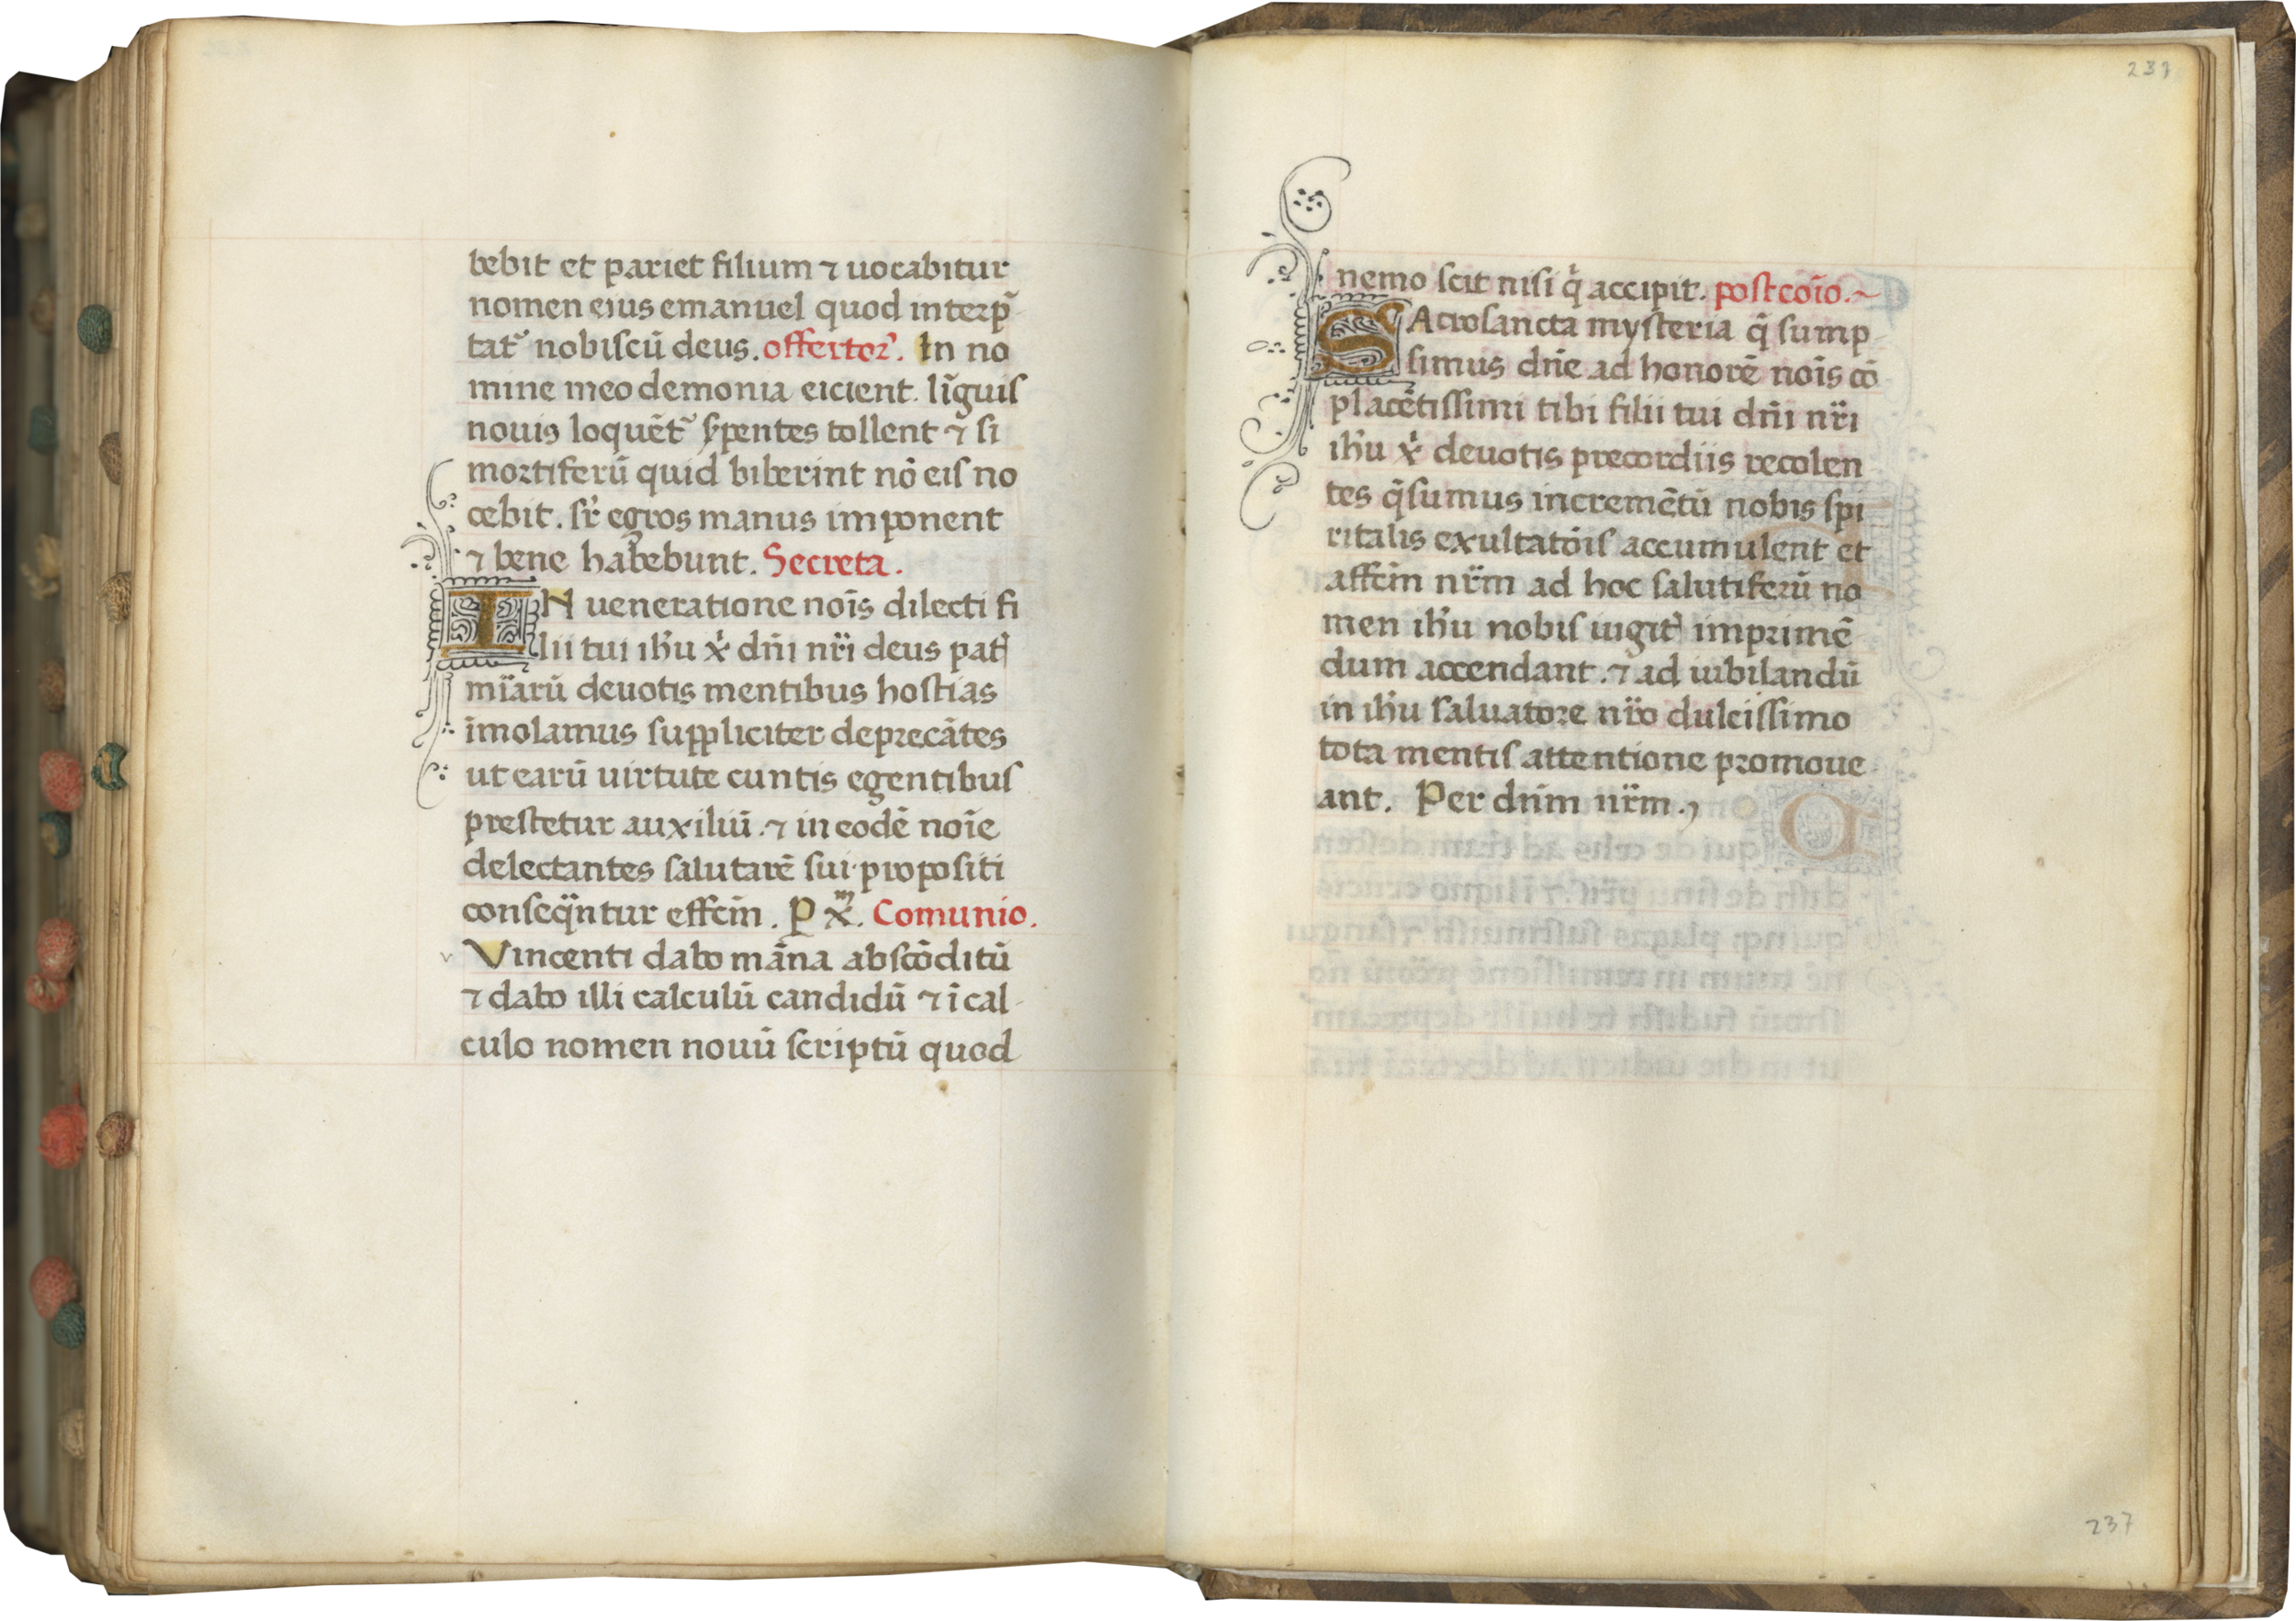 bebit et pariet filium ⁊ uocabitur
nomen eius emanuel quod interp̃
tat᷑ nobiscũ deus. offertoꝝ. In no
mine meo demonia eicient. lĩguis
nouis loquẽt᷑ ẜpentes tollent ⁊ si
mortiferũ quid biberint nõ eis no
cebit. sr̃ egros manus imponent
⁊ bene habebunt. Secreta.
IN ueneratione nõis dilecti fi
lii tui ih̃u x̃ dñi nr̃i deus pat᷑
mĩarũ deuotis mentibus hostias
ĩmolamus suppliciter deprecãtes
ut earũ uirtute cuntis egentibus
prestetur auxiliũ. ⁊ in eodẽ noĩe
delectantes salutarẽ sui propositi
conseq̃ntur effcĩm. P x̃m. Comunio.
Vincenti dabo mãna abscõditũ
⁊ dabo illi calculũ candidũ ⁊ ĩ cal
culo nomen nouũ scriptũ quod
237
nemo scit nisi qͥ accipit. postcoĩo.~
SAcrosancta mysteria q̃ sump
simus dñe ad honorẽ noĩs cõ
placẽtissimi tibi filii tui dñi nr̃i
ih̃u x̃ deuotis precordiis recolen
tes q̃sumus incremẽtũ nobis spi
ritalis exultatõis accumulent et
affcĩm nr̃m ad hoc salutiferũ no
men ih̃u nobis iugit᷑ imprimẽ
dum accendant. ⁊ ad iubilandũ
in ih̃u saluatore nr̃o dulcissimo
tota mentis attentione promoue
ant. Per dñm nr̃m.,
237